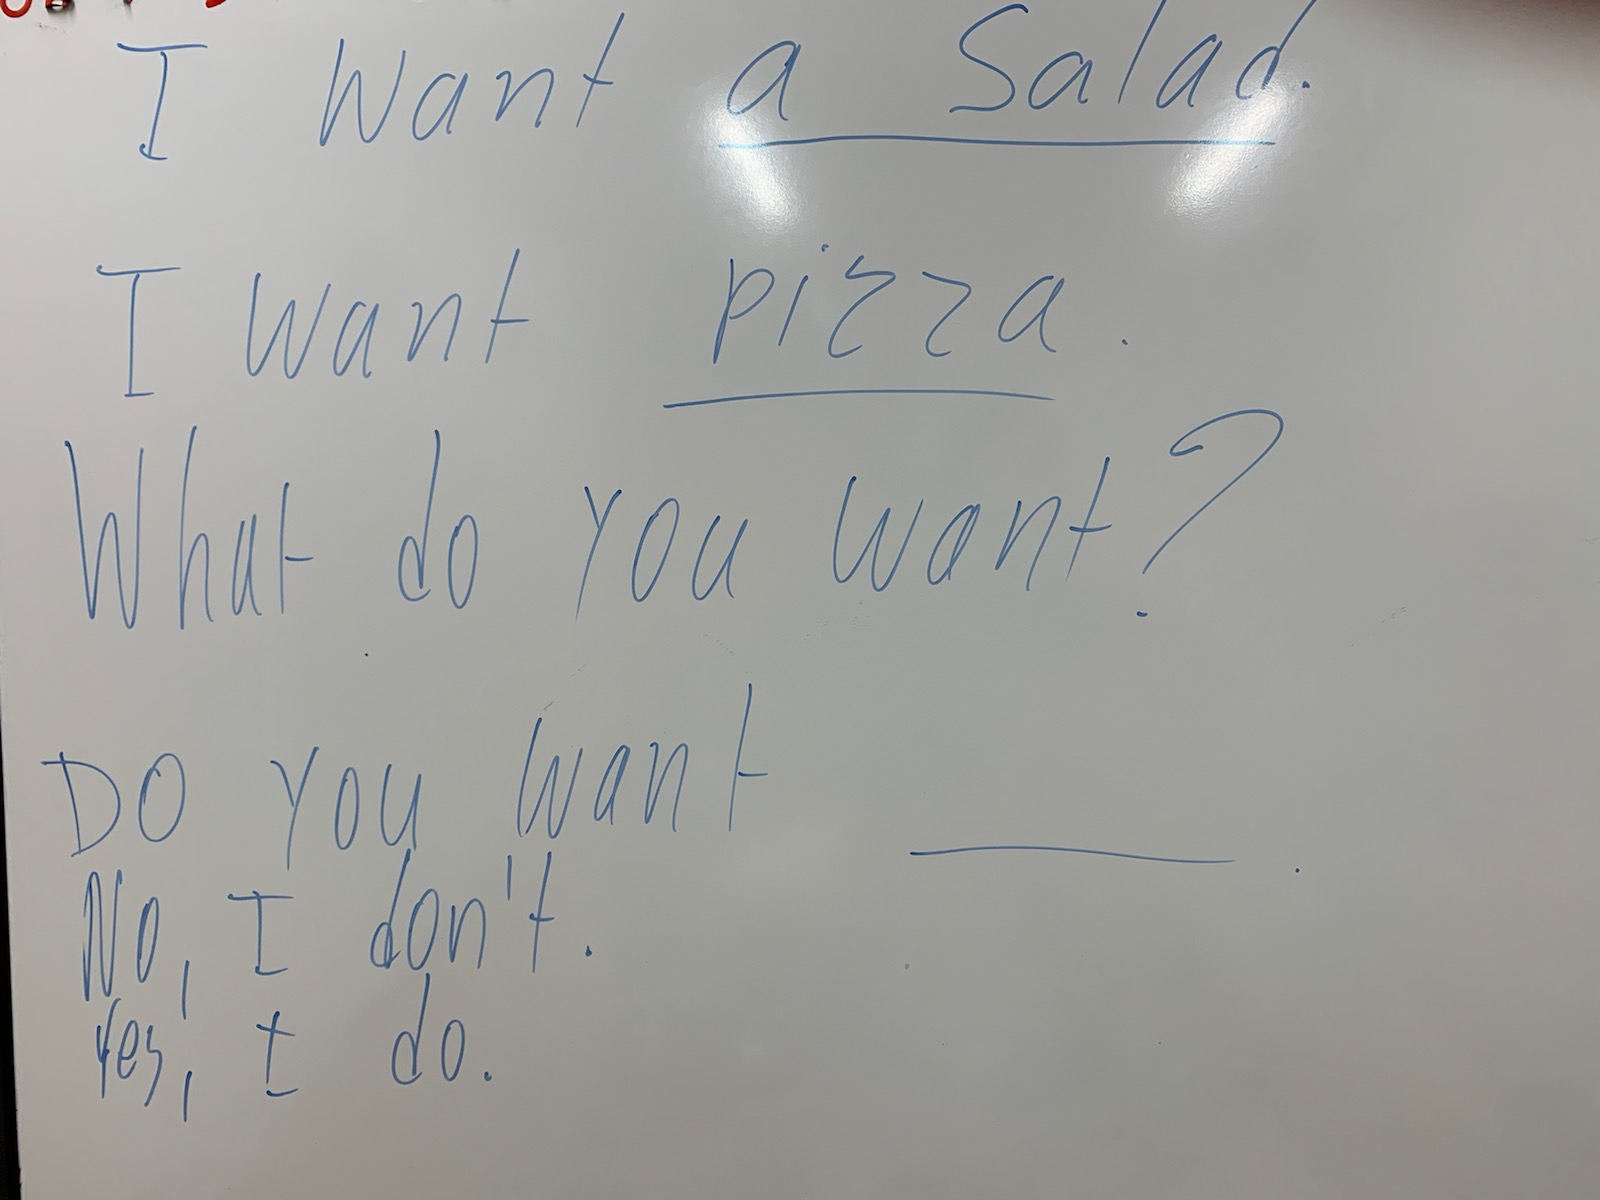 I want a Salad.
I want pizza.
What do you want?
DO you want ______ .
No, I don't.
Yes, I do.